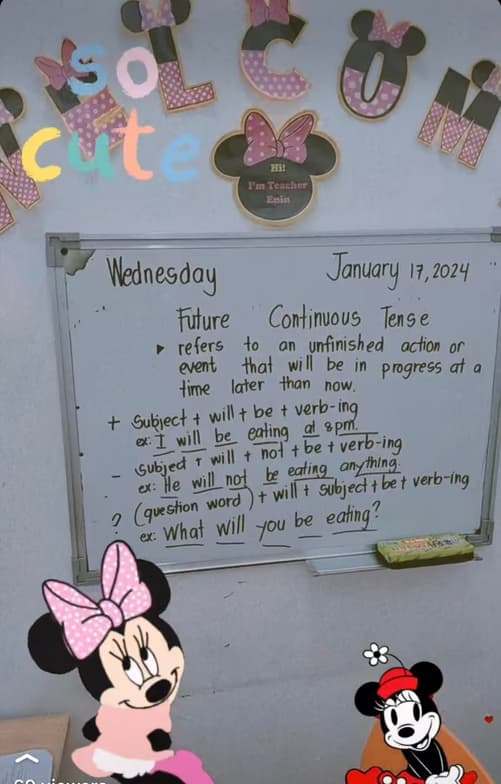 so
cute
WELCOM
Hi!
I'm Teacher
Enin
Wednesday January 17, 2024
Future Continuous Tense
▸ refers to an unfinished action or
event that will be in progress at a
time later than now.
+ Subject + will + be + verb-ing
ex: I will be eating at 8pm.
- Subject + will + not + be + verb-ing
ex: He will not be eating anything.
? (question word) + will + subject + be + verb-ing
ex: What will you be eating?